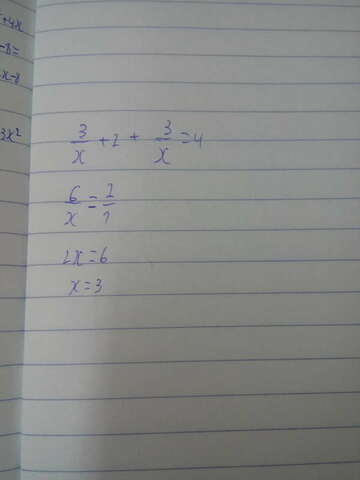 +4x
-8=
x-8
3x²
3/x + 2 + 3/x = 4
6/x = 2/1
2x = 6
x = 3